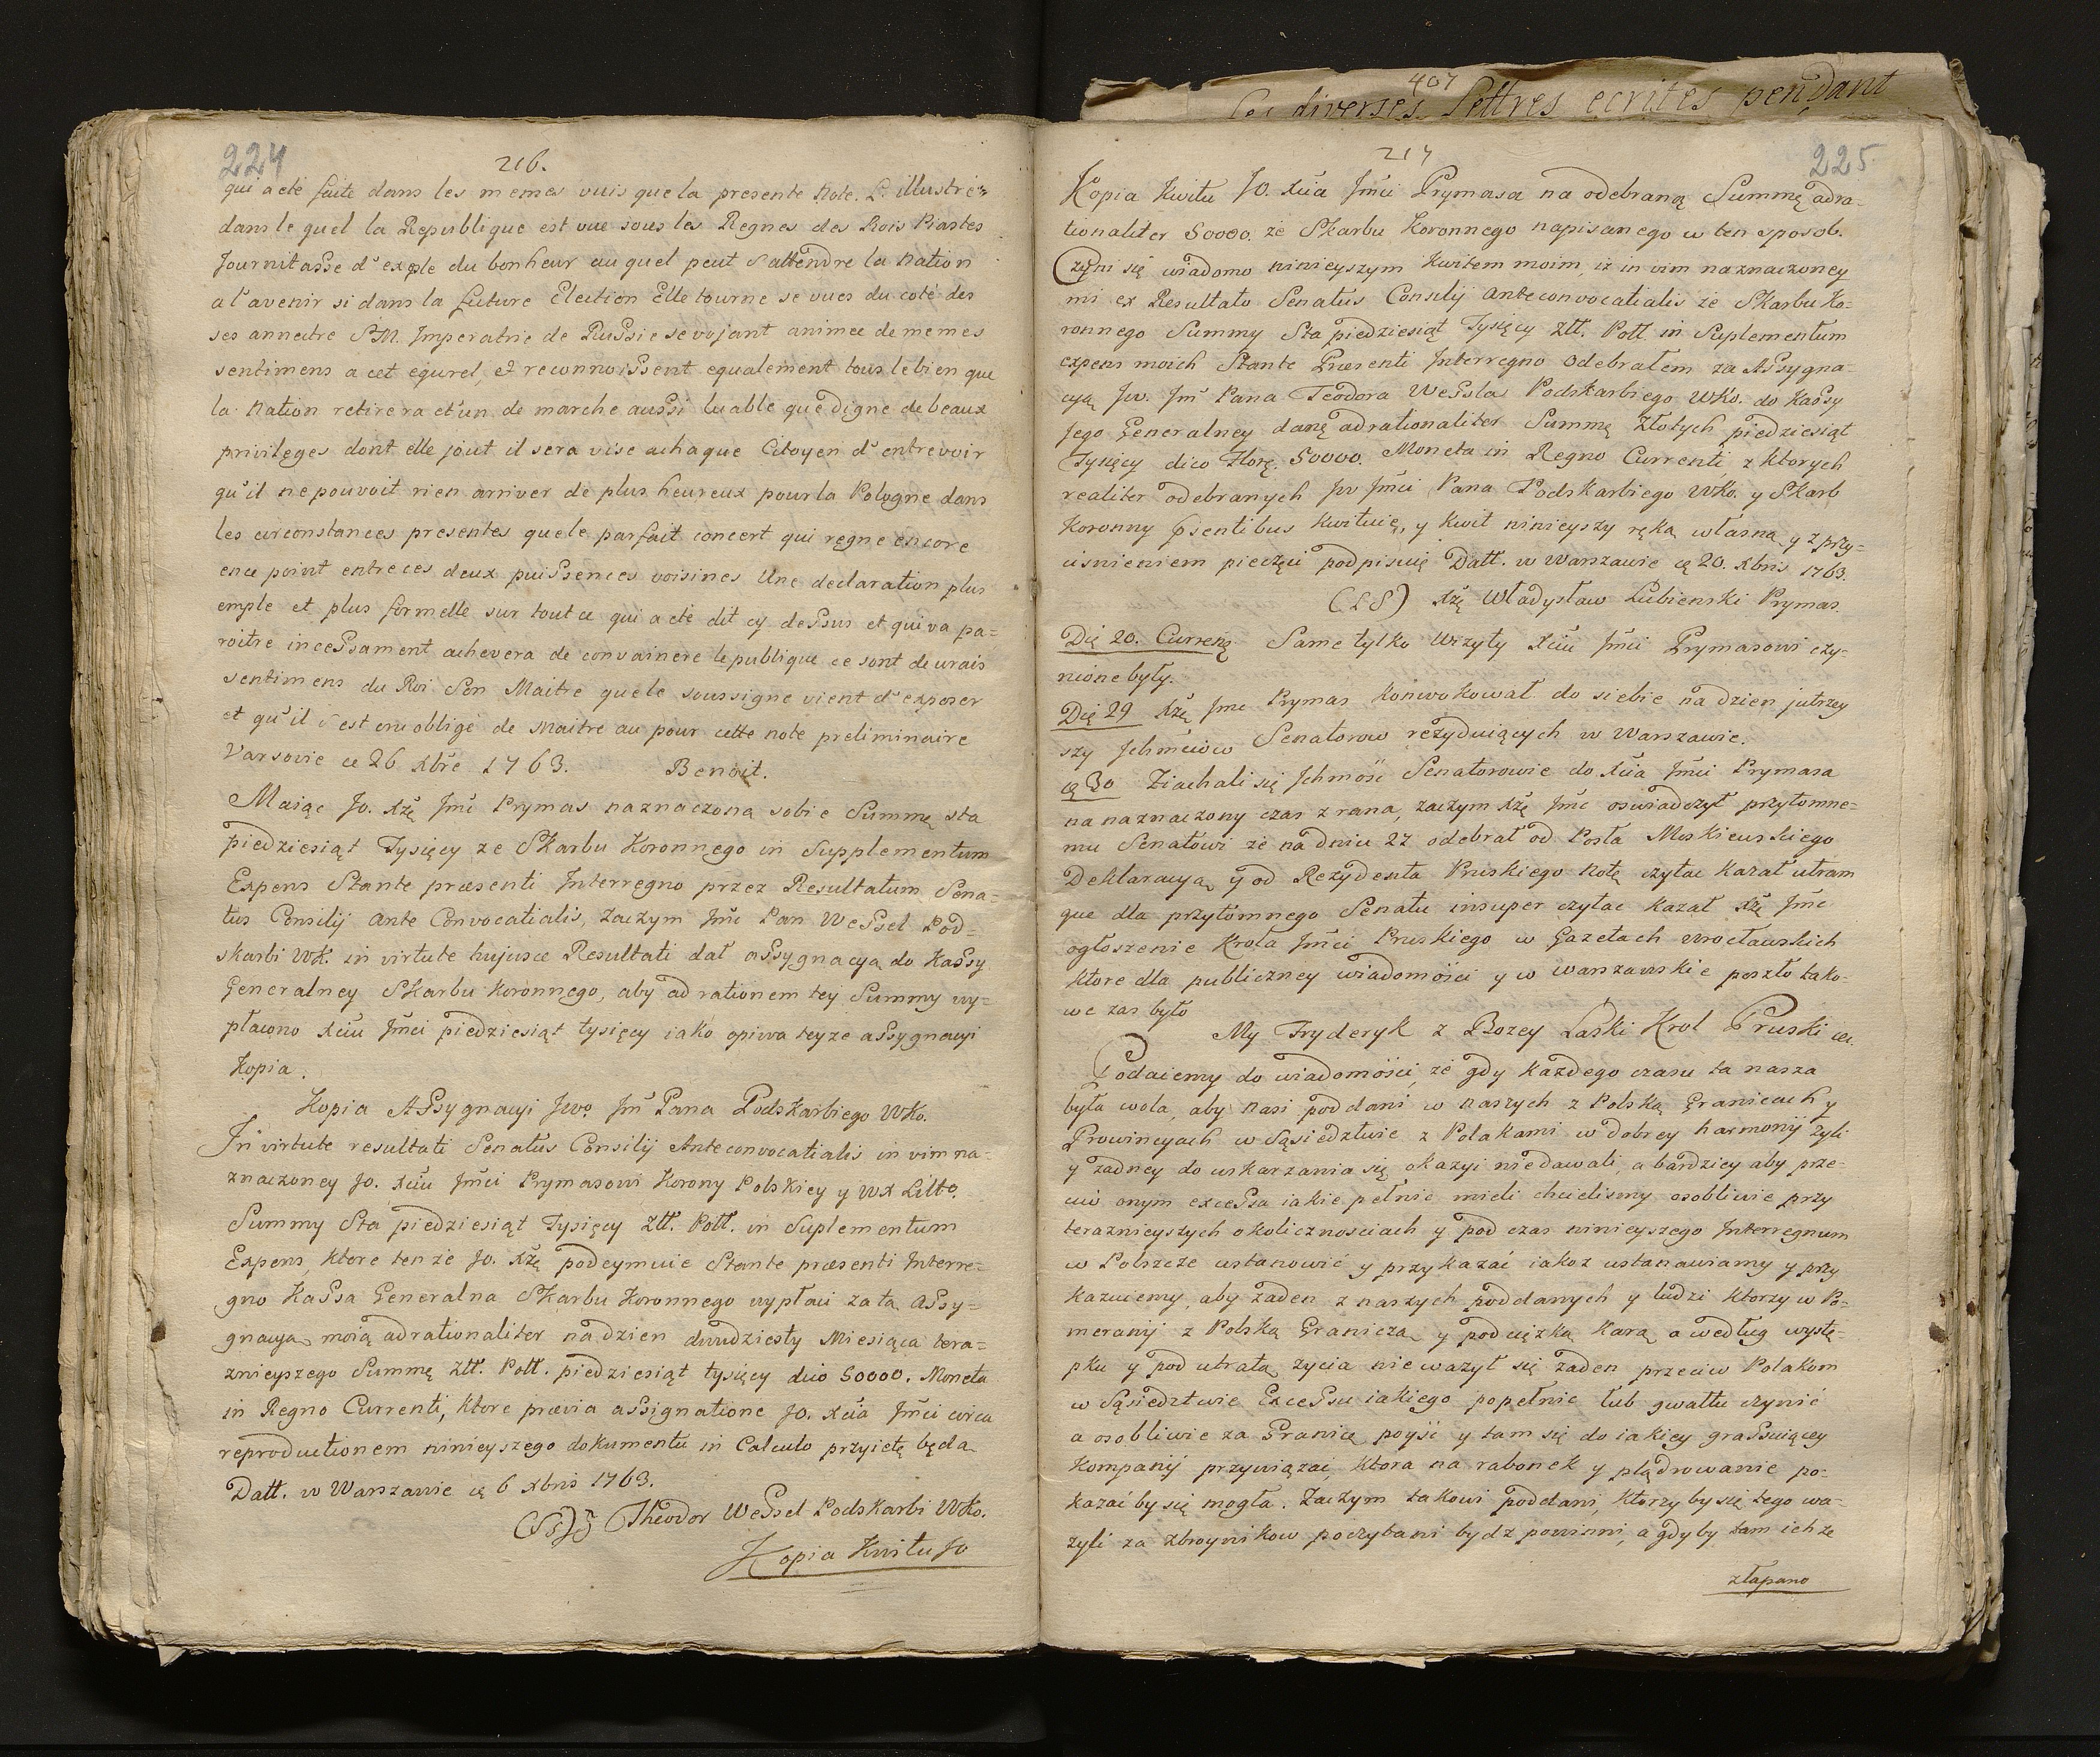 224
216.
qui a eté faite dans les memes vuis que la presente Note. L'illustre
dans le quel la Republique est vue sous les Regnes des Rois Piastes
fournitasse d'exple du bonheur au quel peut s'attendre la Nation
a l'avenir si dans la future Election Elle tourne se vues du coté des
ses anneitre S.M. Imperatrie de Russie se vojant animee de memes
sentimens a cet egurel, et reconnoissent equalement tous le bien que
la Nation retirera d'un de marche aussi luable que digne de beaux
privileges dont elle joiut il sera vise achaque Citoyen d'entrevoir
qu'il ne pouvoit rien arriver de plus heureux pour la Pologne dans
les circonstances presentes que le parfait concert qui regne encore
ence point entre ces deux puissences voisines Une declaration plus
emple et plus formelle sur tout ce qui a eté dit cy dessus et qui va pa=
roitre incessament achevera de convainere le publique ce sont de urais
sentimens du Roi Son Maitre que le soussigne vient d'exposer
et qu'il s'est cru obligé de Maitre au pour cette note preliminaire
Varsovie ce 26 Xbre 1763. Benoit.
Maiąc Jo. Xżę Jmć Prymas naznaczoną sobie Summę sta
piedziesiąt Tysięcy ze Skarbu Koronnego in Supplementum
Expens Stante præsenti Interregno przez Resultatum Sena-
tus Consilij ante Convocatialis, zaczym Jmć Pan Wessel Pod=
skarbi WK. in virtute hujusce Resultati dał assygnacyą do Kassy
Generalney Skarbu Koronnego, aby ad rationem tey Summy wy=
płacono Xciu Jmci piedziesiąt tysięcy iako opiwa teyze assygnacyi
Kopia.
Kopia Assygnacyi Jwo Jm Pana Podskarbiego WKo.
In virtute resultati Senatus Consilij Anteconvocatialis in vim na=
znaczoney Jo. Xciu Jmci Prymasowi Korony Polskiey y WX Litto.
Summy Sta piedziesiąt Tysięcy Złł. Poll. in Suplementum
Expens, ktore tenze Jo. Xżę podeymuie Stante præsenti Interre=
gno Kassa Generalna Skarbu Koronnego wypłaci za tą Assy=
gnacyą moią adrationaliter na dzien dwudziesty Miesiąca tera=
znieyszego Summę Złł. Poll. piedziesiąt tysięcy dico 50000. Moneta
in Regno Currenti, ktore prævia assignatione Jo. Xcia Jmci circa
reproductionem ninieyszego dokumentu in Calculo przyietę będą
Datt. w Warszawie d 6 Xbris 1763.
Theodor Wessel Podskarbi WKo.
Kopia Kwitu Jo
407
les diverses Lettres ecrites pendant
217
225
Kopia Kwitu JO. Xcia Jmci Prymasa na odebraną Summę adra-
tionaliter 50000. ze Skarbu Koronnego napisanego w ten sposob.
Czyni się wiadomo ninieyszym Kwitem moim, iz in vim naznaczoney
mi ex Resultato Senatus Consilij Anteconvocatialis ze Skarbu Ko=
ronnego Summy Sta piedziesiąt Tysięcy Złł. Poll. in Suplementum
expens moich Stante Præsenti Interregno odebrałem za Assygna-
cyą Jw. Jm Pana Teodora Wessla Podskarbiego WKo. do Kassy
Jego Generalney daną adrationaliter Summę Złotych piedziesiąt
Tysięcy dico Florę. 50000. Moneta in Regno Currenti z ktorych
realiter odebranych Jw Jmci Pana Podskarbiego WKo. y Skarb
Koronny psentibus Kwituię, y Kwit ninieyszy ręką własną y z przy=
cisnieniem pieczęci podpisuię Datt. w Warszawie d 20. Xbris 1763.
(LS) Xżę Władysław Lubienski Prymas.
Dię 20. Currenę Same tylko Wizyty Xciu Jmci Prymasowi czy-
nione były.
Dię 29 Xżę Jmc Prymas konwokował do siebie na dzien jutrzey
szy Jchmciow Senatorow rezyduiących w Warszawie.
d 30 Ziachali się Jchmość Senatorowie do Xcia Jmci Prymasa
na naznaczony czas z rana, zaczym Xżę Jmc oswiadczył przytomne=
mu Senatowi ze na dniu 27 odebrał od Posła Moskiewskiego
Deklaracyą y od Rezydenta Pruskiego Notę czytac kazał utram
que dla przytomnego Senatu insuper czytac kazał Xżę Jmc
ogłoszenie Krola Jmci Pruskiego w Gazetach wrocławskich
ktore dla publiczney wiadomości y w warszawskie poszło tako-
we zas było
My Fryderyk z Bozey Łaski Krol Pruski etc.
Podaiemy do wiadomości, ze gdy kazdego czasu ta nasza
była wola, aby nasi poddani w naszych z Polską Granicach y
Prowincyach w Sąsiedztwie z Polakami w dobrey harmonij zyli
y zadney do uskarzania się okazyi niedawali, a bardziey aby prze-
ciw onym excessa iakie pełnic mieli chcielismy osobliwie przy
teraznieyszych okolicznosciach y pod czas ninieyszego Interregnum
w Polszcze ustanowić y przykazać iakoz ustanawiamy y przy
kazuiemy, aby zaden z naszych poddanych y ludzi ktorzy w Po-
meranij z Polską Graniczą y pod ciężką karą a według wystę-
pku y pod utratą zycia nie wazył się zaden przeciw Polakom
w Sąsiedztwie Excessu iakiego popełnic lub gwałtu czynić
a osobliwie za Granicę poyść y tam się do iakiey grassuiącey
kompanij przywiązać, ktora na rabonek y plądrowanie po-
kazać by się mogła. Zaczym takowi poddani, ktorzy by się tego wa-
zyli za zbroynikow poczytani bydz powinni, a gdyby tam ich ze
złapano